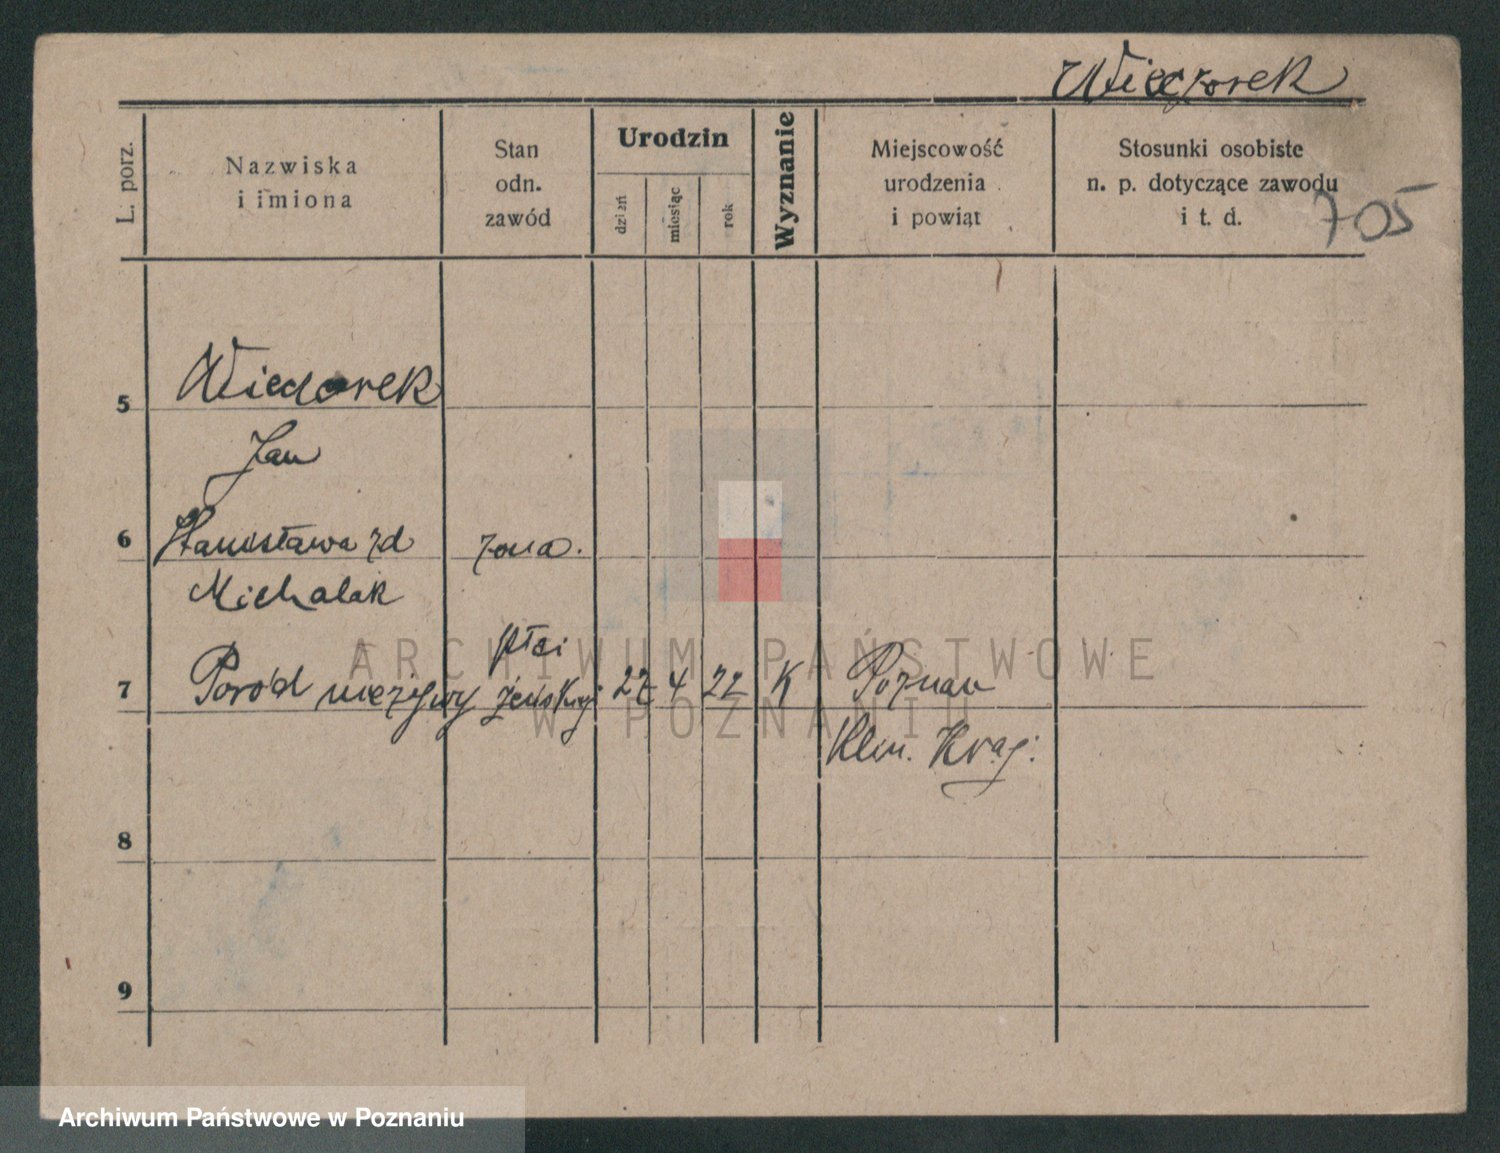 Wieczorek
L. porz.
Nazwiska
i imiona
Stan
odn.
zawód
Urodzin
dzień
miesiąc
rok
Wyznanie
Miejscowość
urodzenia
i powiąt
Stosunki osobiste
n. p. dotyczące zawodu
i t. d.
705
5 Wieczorek
Jan
6 Stanisława zd żona.
Michalak
płci
7 Poród nieżywy żeńskiej 27 4 22 K Poznań
Klin. Kraj.
8
9
ARCHIWUM PAŃSTWOWE
W POZNANIU
Archiwum Państwowe w Poznaniu